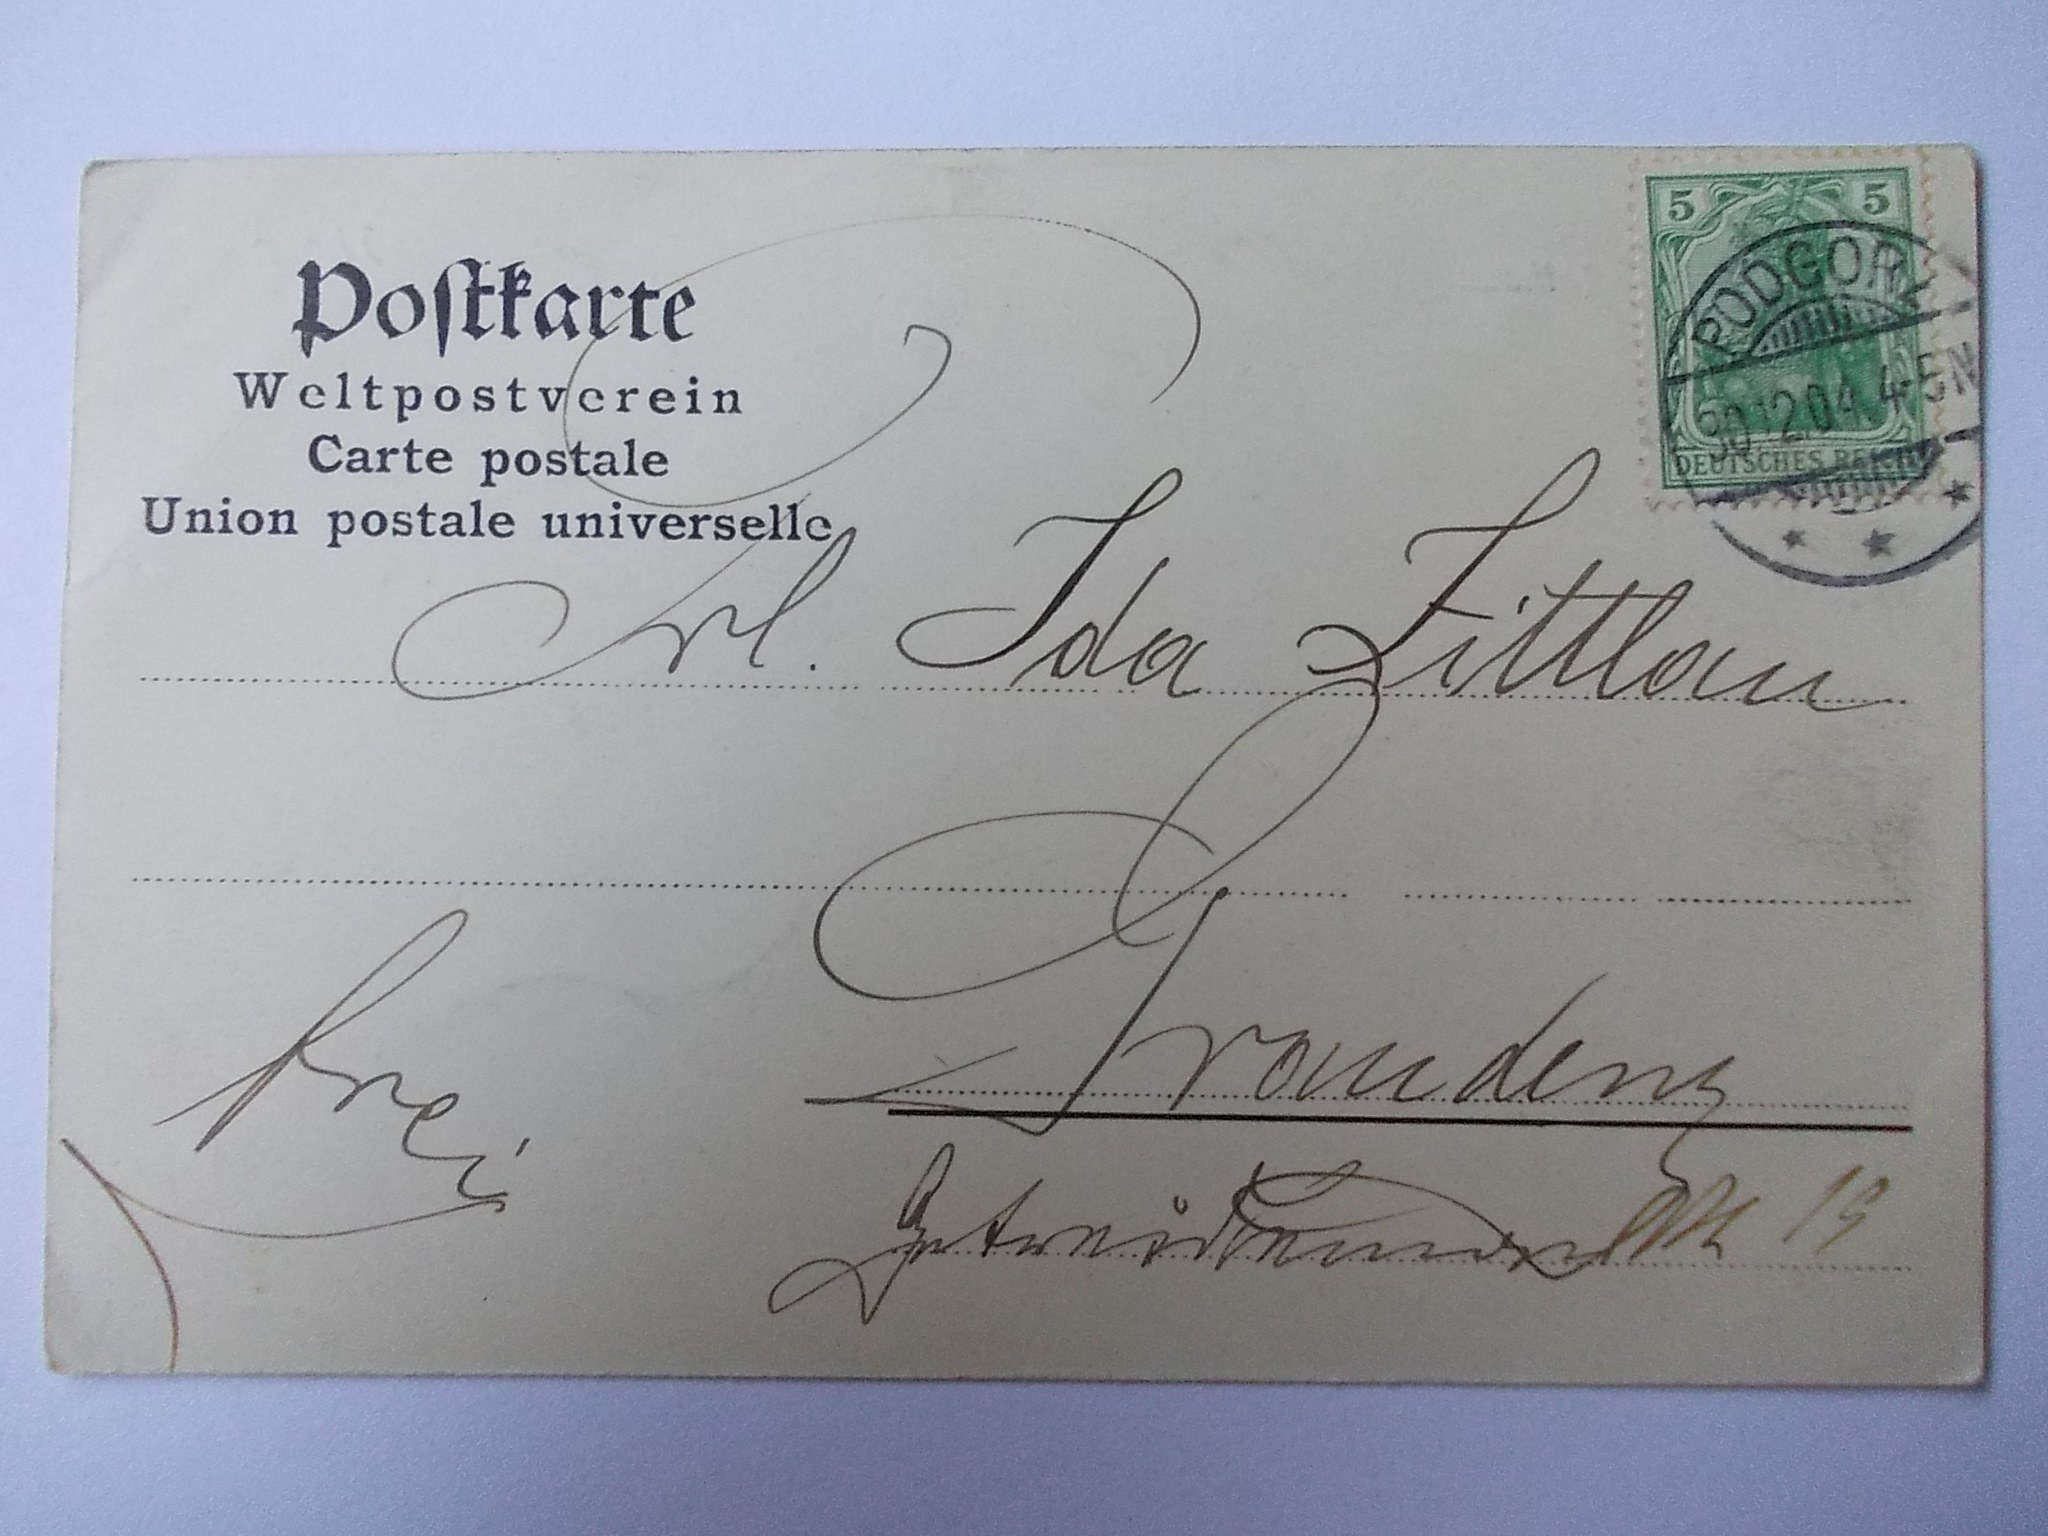 Postkarte
Weltpostverein
Carte postale
Union postale universelle
5 5
PODGORZ
30.12.04. 4-5N
DEUTSCHES REICH
Frl. Ida Zittlau
Graudenz
frei
Getreidemarkt 19